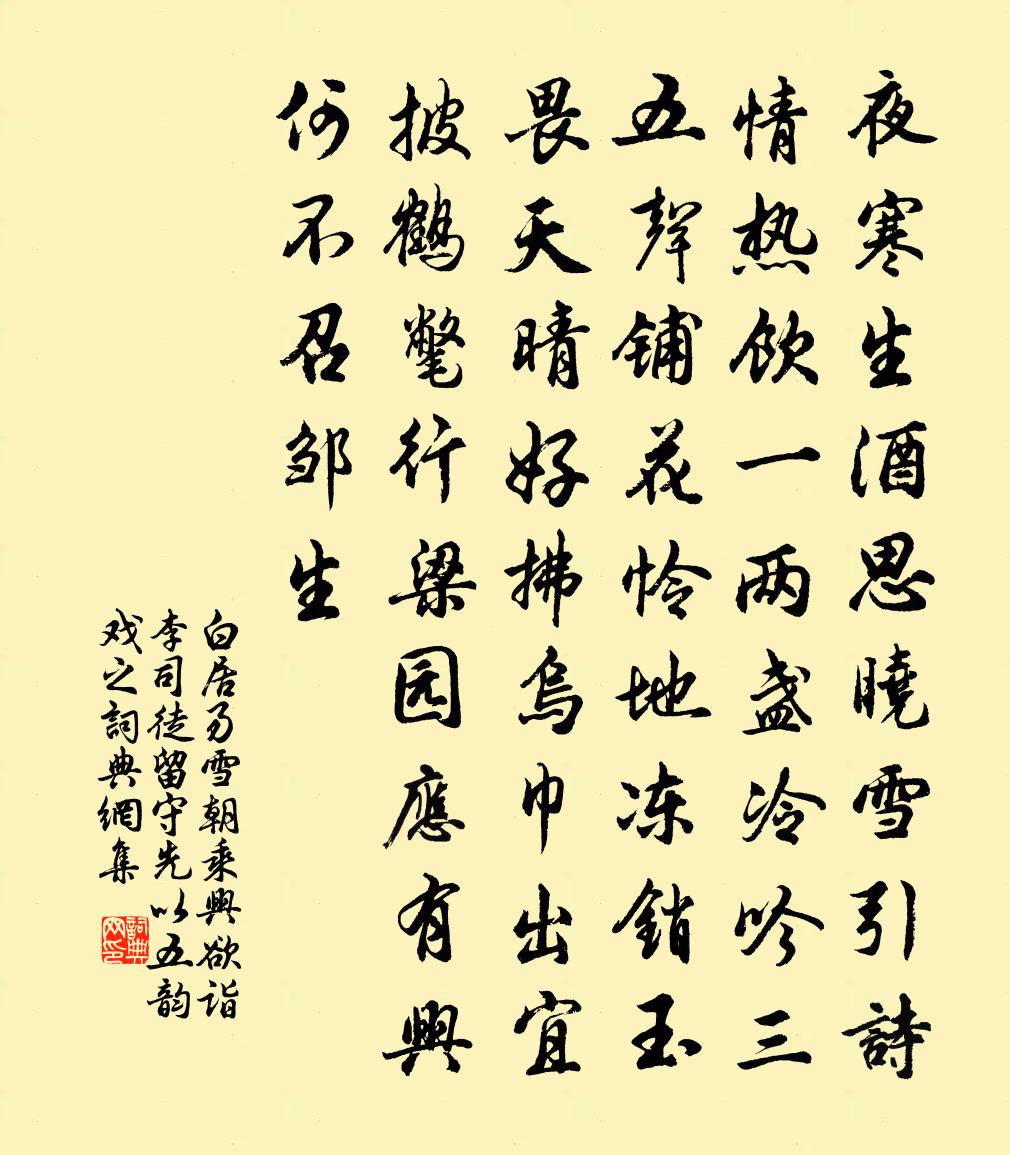 夜寒生酒思曉雪引詩
情热飲一两盏冷吟三
五聲铺花怜地冻銷玉
畏天晴好拂烏巾出宜
披鶴氅行梁园應有興
何不召邹生
白居易雪朝乘興欲詣
李司徒留守先以五韵
戏之詞典網集
詞典
网印